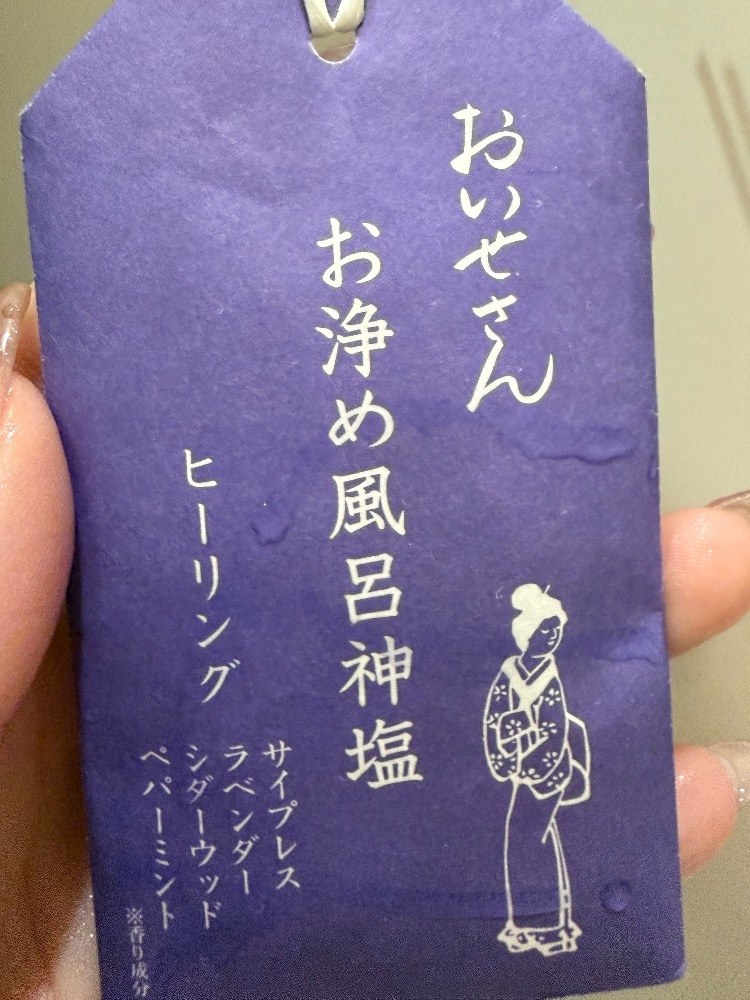 おいせさん
お浄め風呂神塩
ヒーリング
サイプレス
ラベンダー
シダーウッド
ペパーミント
※香り成分